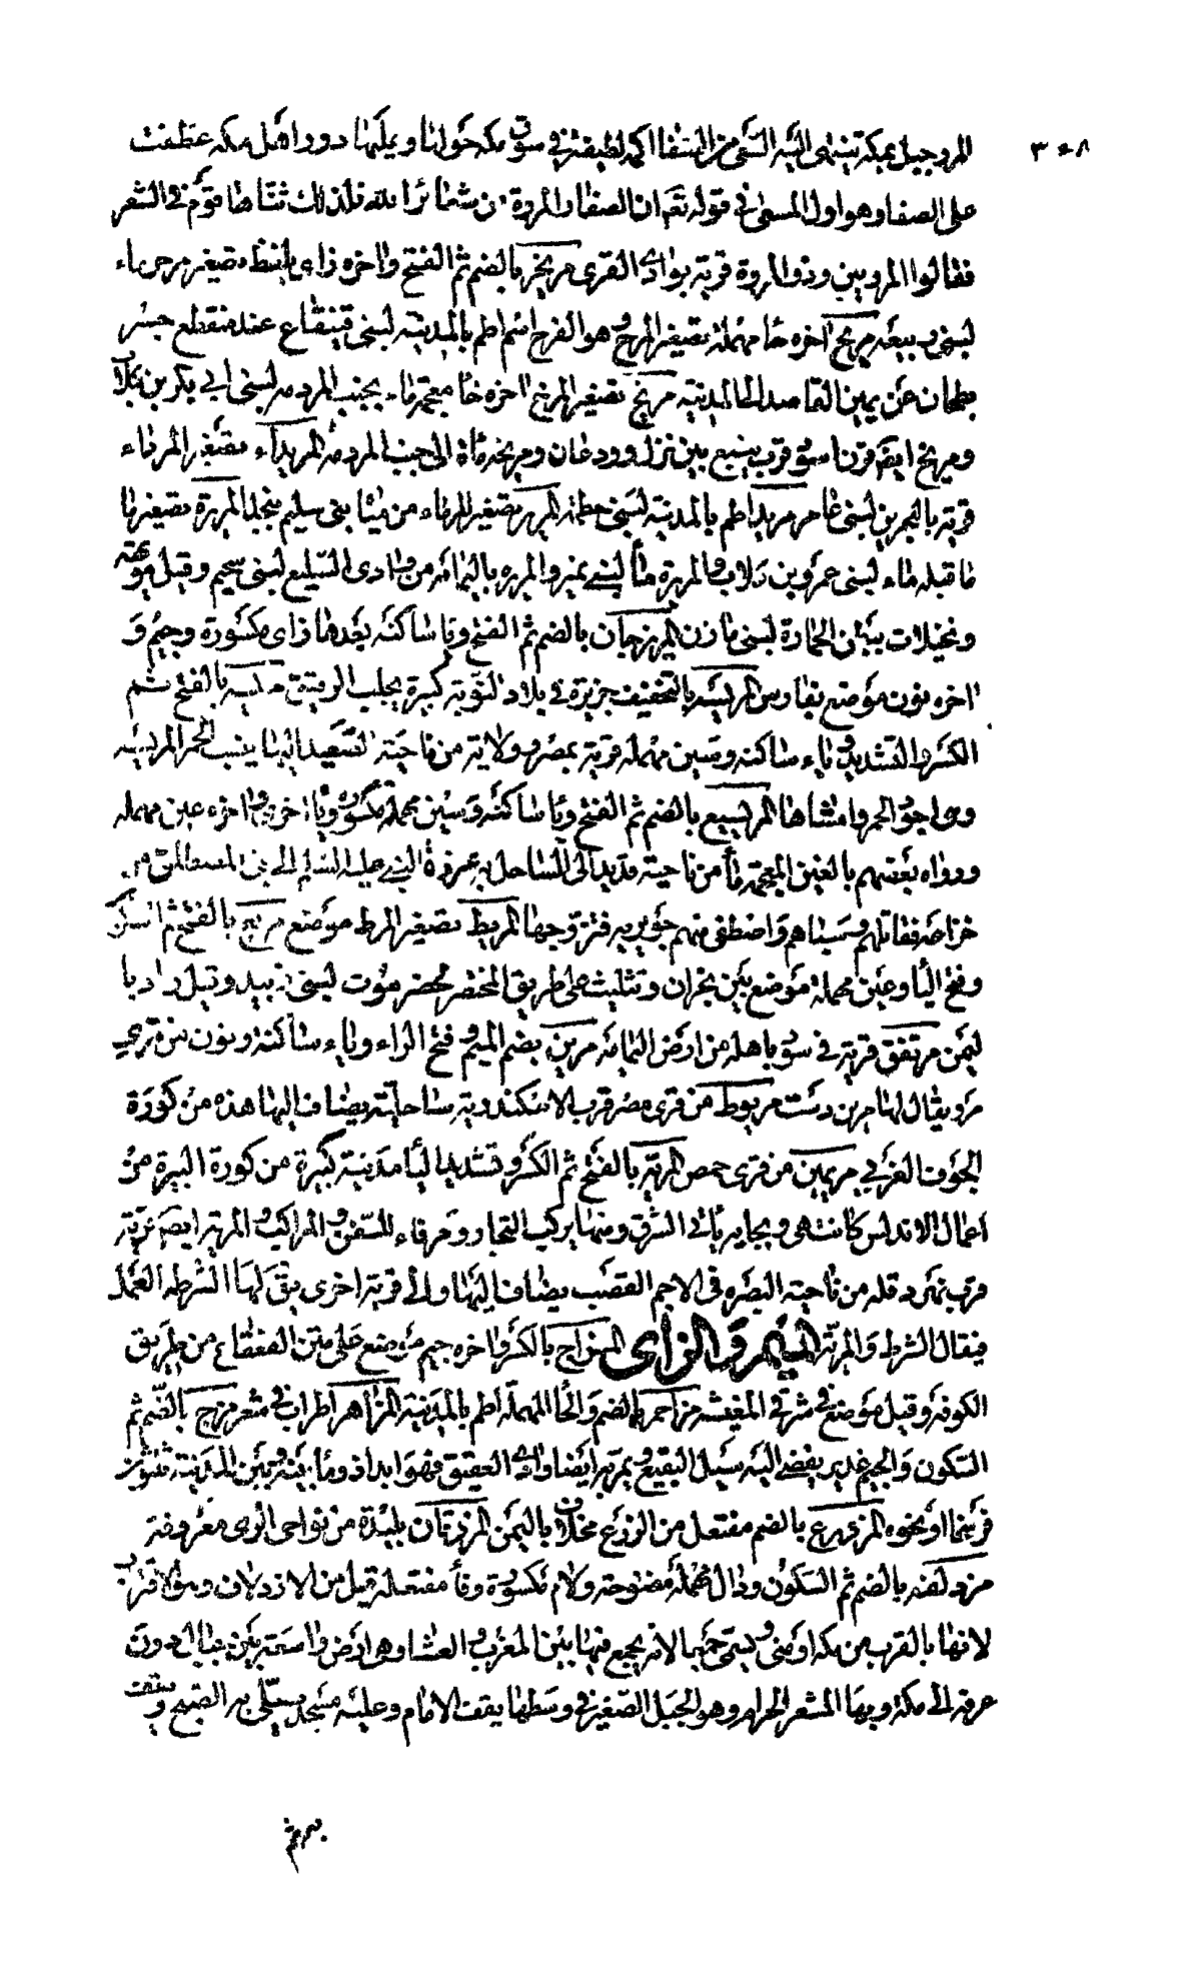 ٣٠٨
المروة جبل بمكة ينتهى اليه السعى من الصفا اكمة لطيفة في سوق مكة حولها ويملكها دور اهل مكة عطفت
على الصفا وهو اول المسعى في قوله تعـ ان الصفا والمروة من شعائر الله فلذلك ثناهما قوم في الشعر
فقالوا المروتين وذو المروة قرية بوادى القرى مريخز بالضم ثم الفتح واخره زاى بلفظ تصغير ماء
لبنى ربيعة مريح اخره حا مهملة تصغير المرح وهو الفرح اسم اطم بالمدينة لبنى قينقاع عند منقطع جسر
بطحان عن يمين القاصد الى المدينة مريخ تصغير المريخ اخره خا معجمة ماء بجنب المردمة لبنى ابي بكر بن كلاب
ومريخ ايضا قرن اسود قرب ينبع بين نزل وودعان ومريخة ماءة الى جنب المردمة المريداء تصغير المرداء
قرية بالبحرين لبنى عامر مريد اطم بالمدينة لبنى خطمة المرير تصغير المر ماء من مياه بنى سليم بنجد المريرة تصغير ما
ما قبله ماء لبنى عمرو بن كلاب والمريرة ماء لبنى نمير والمريرة باليمامة من وادى السليع لبنى سحيم وقيل مويهة
ونخيلات ببطن الحمادة لبنى مازن المريزجان بالضم ثم الفتح ويا ساكنة بعدها زاى مكسورة وجيم و
اخره نون موضع بفارس المريسة بالتخفيف جزيرة في بلاد النوبة كبيرة يجلب الرقيق مريسه بالفتح ثم
الكسر والتشديد وياء ساكنة وسين مهملة قرية بمصر وولاية من ناحية الصعيد اليها ينسب الحمر المريسية
وهى اجود الحمر وامشاها المريسيع بالضم ثم الفتح ويا ساكنة وسين مهملة مكسورة ويا اخرى واخره عين مهملة
ورواه بعضهم بالغين المعجمة ماء من ناحية قديد الى الساحل به غزوة النبى عليه السلام الى بنى المصطلق من
خزاعة فقاتلهم وسباهم واصطفى منهم جويرية فتزوجها المريط تصغير المرط موضع مريع بالفتح ثم السكون
وفتح اليا وعين مهملة موضع بين نجران وتثليث على طريق المختصر حضرموت لبنى زبيد وقيل واد با
ليمن مرتفق قرية في سود باهلة من ارض اليمامة مرين بضم الميم وفتح الراء وياء ساكنة ونون من قرى
مرو يقال لها مرين دشت مريوط من قرى مصر قرب الاسكندرية ساحلية يضاف اليها هذه من كورة
الجوف الغربي مريمين من قرى حمص المرية بالفتح ثم الكسر وتشديد اليا مدينة كبيرة من كورة البيرة من
اعمال الاندلس كانت هى وبجاية بابى الشرق ومنها يركب التجار ومرفاء للسفن والمراكب والمرية ايضا قرية
قرب نهر دقلة من ناحية البصرة في الاجم القصب يضاف اليها والى قرية اخرى يقـ لها الشرطة العمل
فيقال الشرط والمرية الميم والزاى المزاج بالكسر واخره جيم موضع على متن القعقاع من طريق
الكوفة وقيل موضع في شرقى المغيثة مزاحم بالضم والحا المهملة اطم بالمدينة المزاهر اطراب في شعر مزج بالضم ثم
السكون والجيم غدير يفضى اليه سيل النقيع ويمر به ايضا وادى العقيق فهو ابدا ذو ماء بينه وبين المدينة ثلثون
فرسخا او نحوه المزدرع بالضم مفتعل من الزرع مخلاف باليمن المزدقان بليدة من نواحى الرى معروفة
مزدلفة بالضم ثم السكون ودال مهملة مفتوحة ولام مكسورة وفاء مفتعلة قيل من الازدلاف وهو الاقتراب
لانها بالقرب من مكة او منى ويسمى جمعا لانه يجمع فيها بين المغرب والعشا وهى ارض واسعة بين جبال دون
عرفة الى مكة وبها المشعر الحرام وهو الجبل الصغير في وسطها يقف الامام وعليه مسجد يصلى به الصبح ويقف